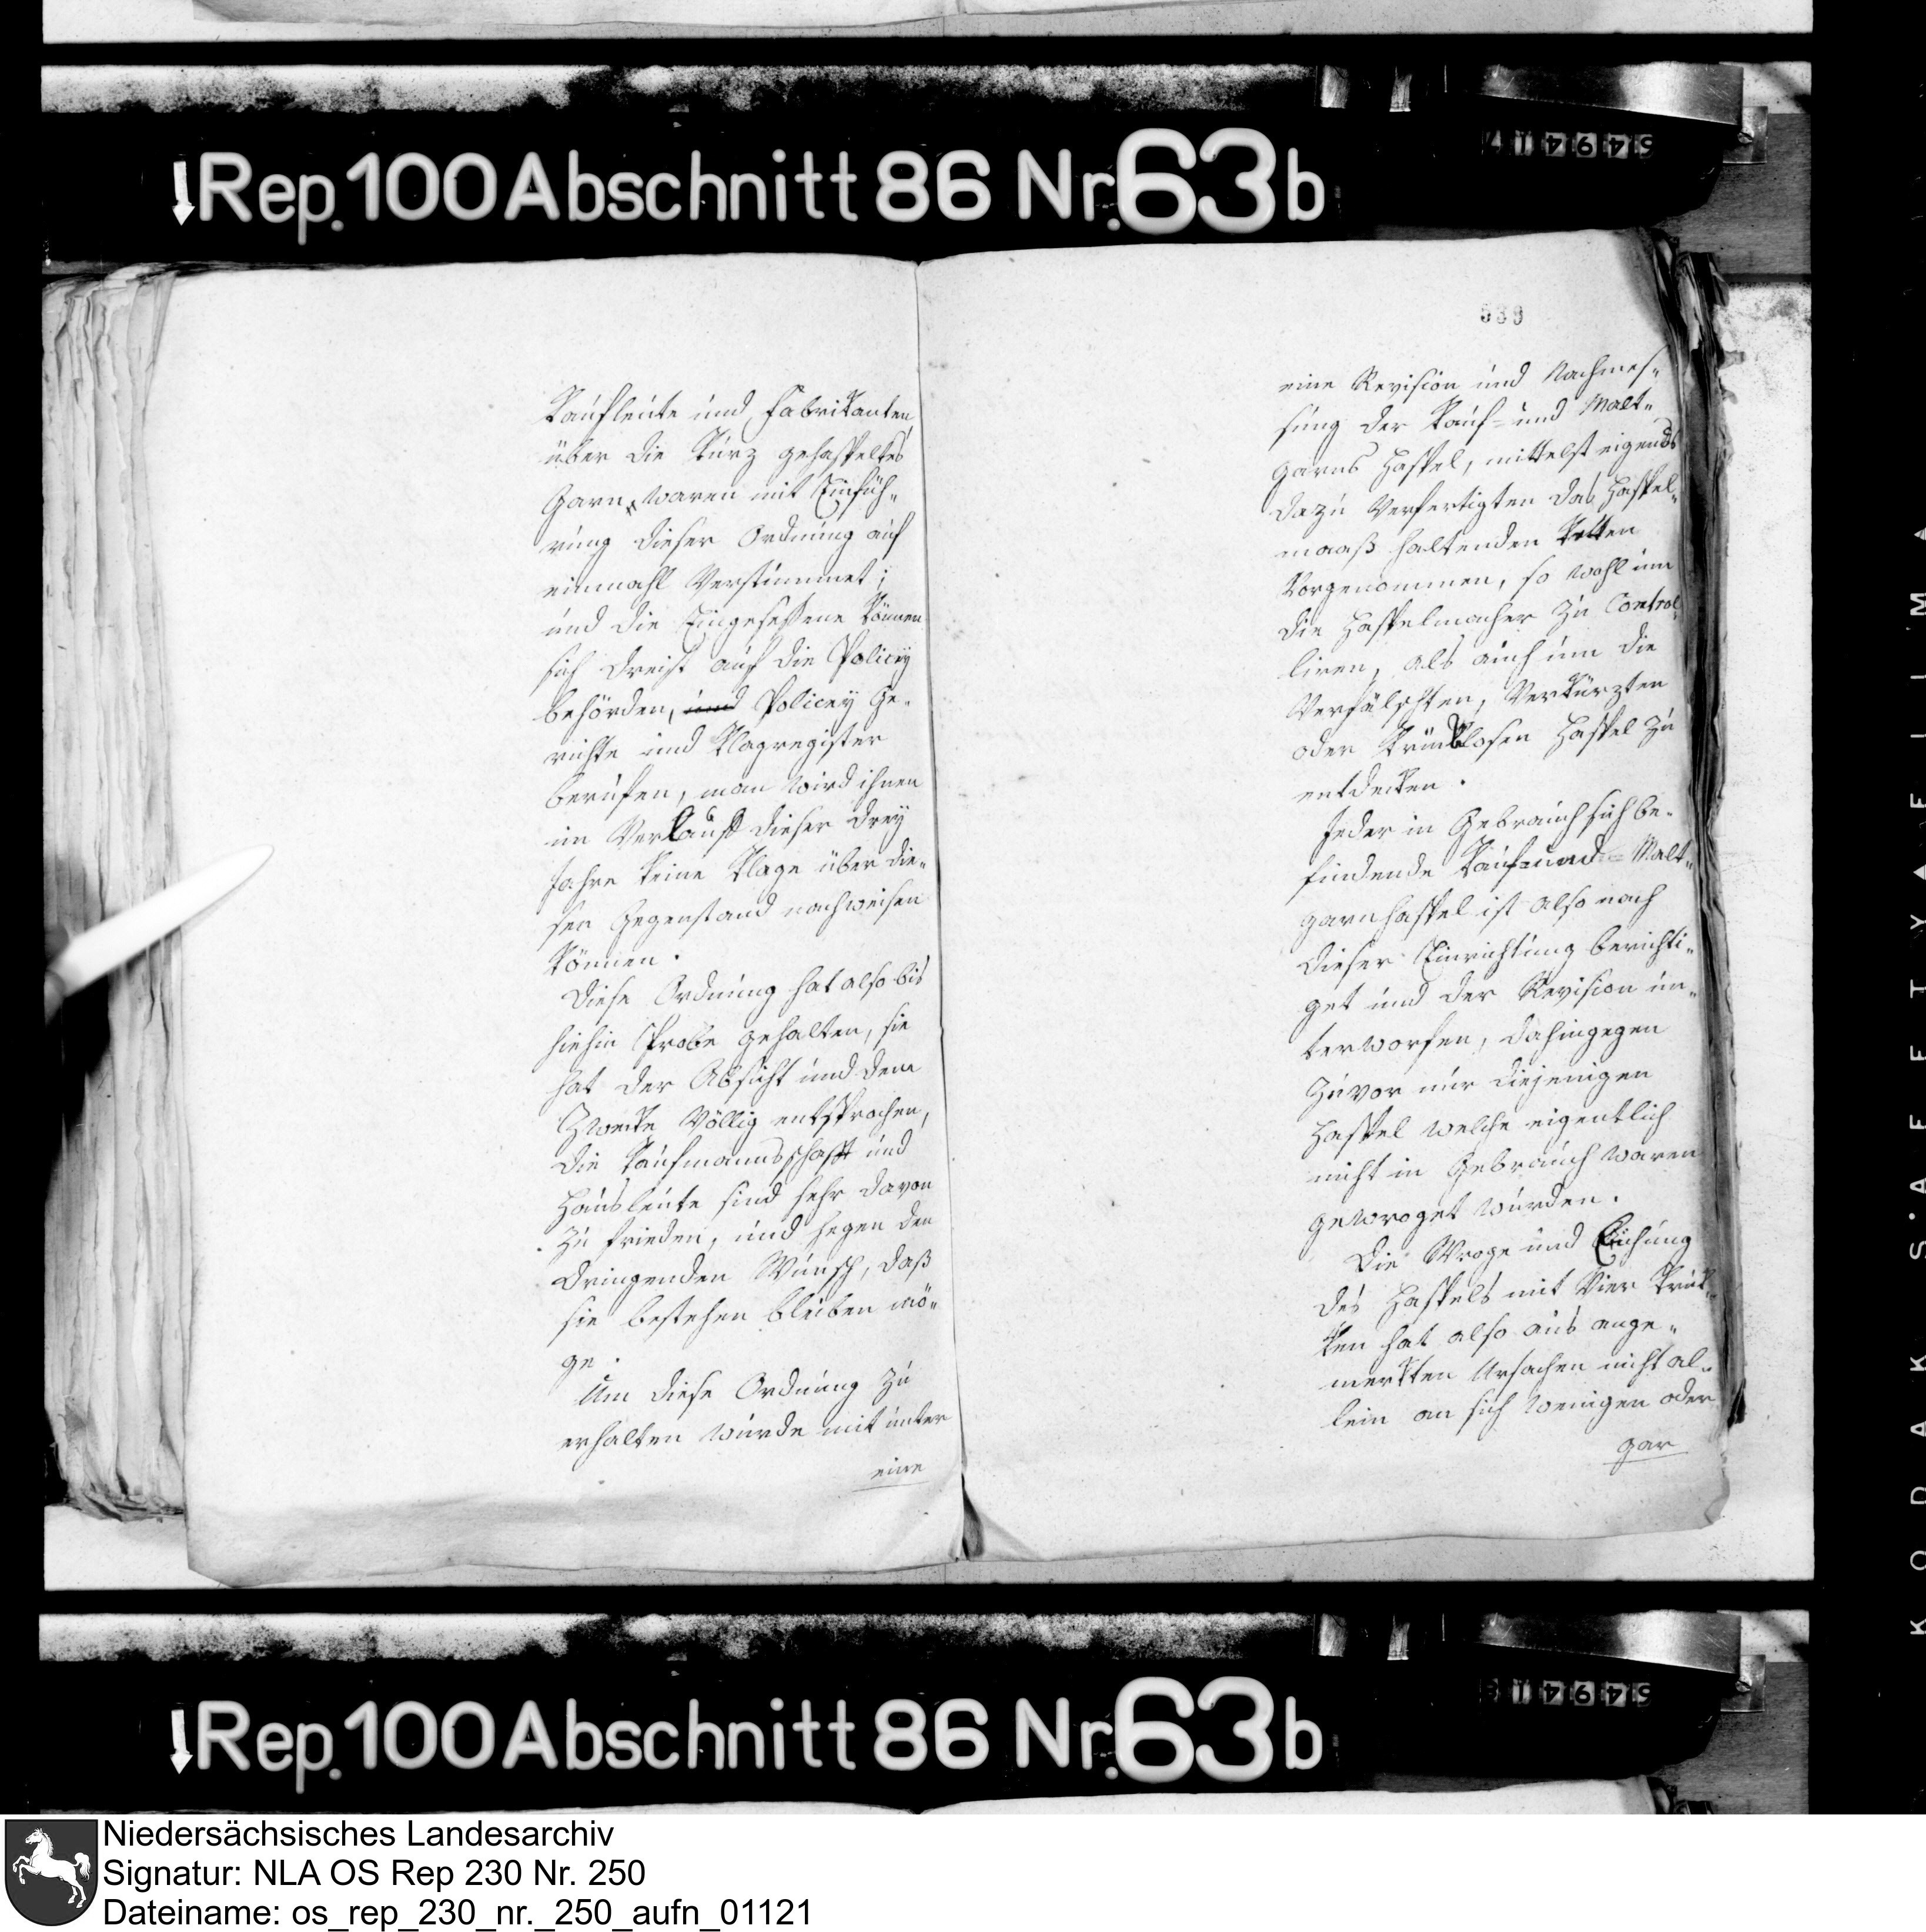 Rep. 100 Abschnitt 86 Nr. 63b
Kaufleute und Fabrikanten
über die kurz gehaspeltes
Garn, waren mit Einfüh„
rung dieser Ordnung auf
einmahl verstummet;
und die Eingesessene können
sich dreist auf die Policey
behörden, und Policey Ge„
richte und Klagregister
berufen, man wird ihnen
im Verlauf dieser drey
Jahre keine Klage über die„
sen Gegenstand nachweisen
können.
Diese Ordnung hat also bis
hiehin Probe gehalten, sie
hat der Absicht und dem
Zwecke völlig entsprochen,
die Kaufmannsschaft und
Hausleute sind sehr davon
zu frieden, und hegen den
dringenden Wunsch, daß
sie bestehen bleiben mö„
ge.
Um diese Ordnung zu
erhalten wurde mit unter
eine
539
eine Revision und Nachmes„
sung der Kauf- und Malt„
garns Haspel, mittelst eigends
dazu verfertigten das Haspel„
maaß haltenden Ketten
vorgenommen, so wohl um
die Haspelmacher zu Control„
liren, als auch um die
Verfälschten, Verkürzten
oder krücklosen Haspel zu
entdecken.
Jeder in Gebrauch sich be„
findende Kauf- und Malt„
garnhaspel ist also nach
dieser Einrichtung berichti„
get und der Revision un„
terworfen, dahingegen
zuvor nur diejenigen
Haspel welche eigentlich
nicht in Gebrauch waren
gewroget wurden.
Die Wroge und Eichung
des Haspels mit vier Krük„
ken hat also aus ange„
merkten Ursachen nicht al„
lein an sich wenigen oder
gar
Rep. 100 Abschnitt 86 Nr. 63b
KODAK·SAFETY
Niedersächsisches Landesarchiv
Signatur: NLA OS Rep 230 Nr. 250
Dateiname: os_rep_230_nr._250_aufn_01121